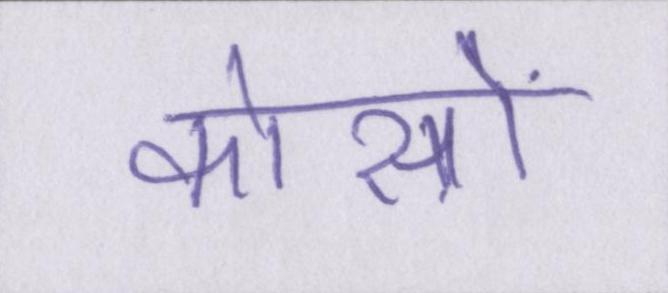 कोसों